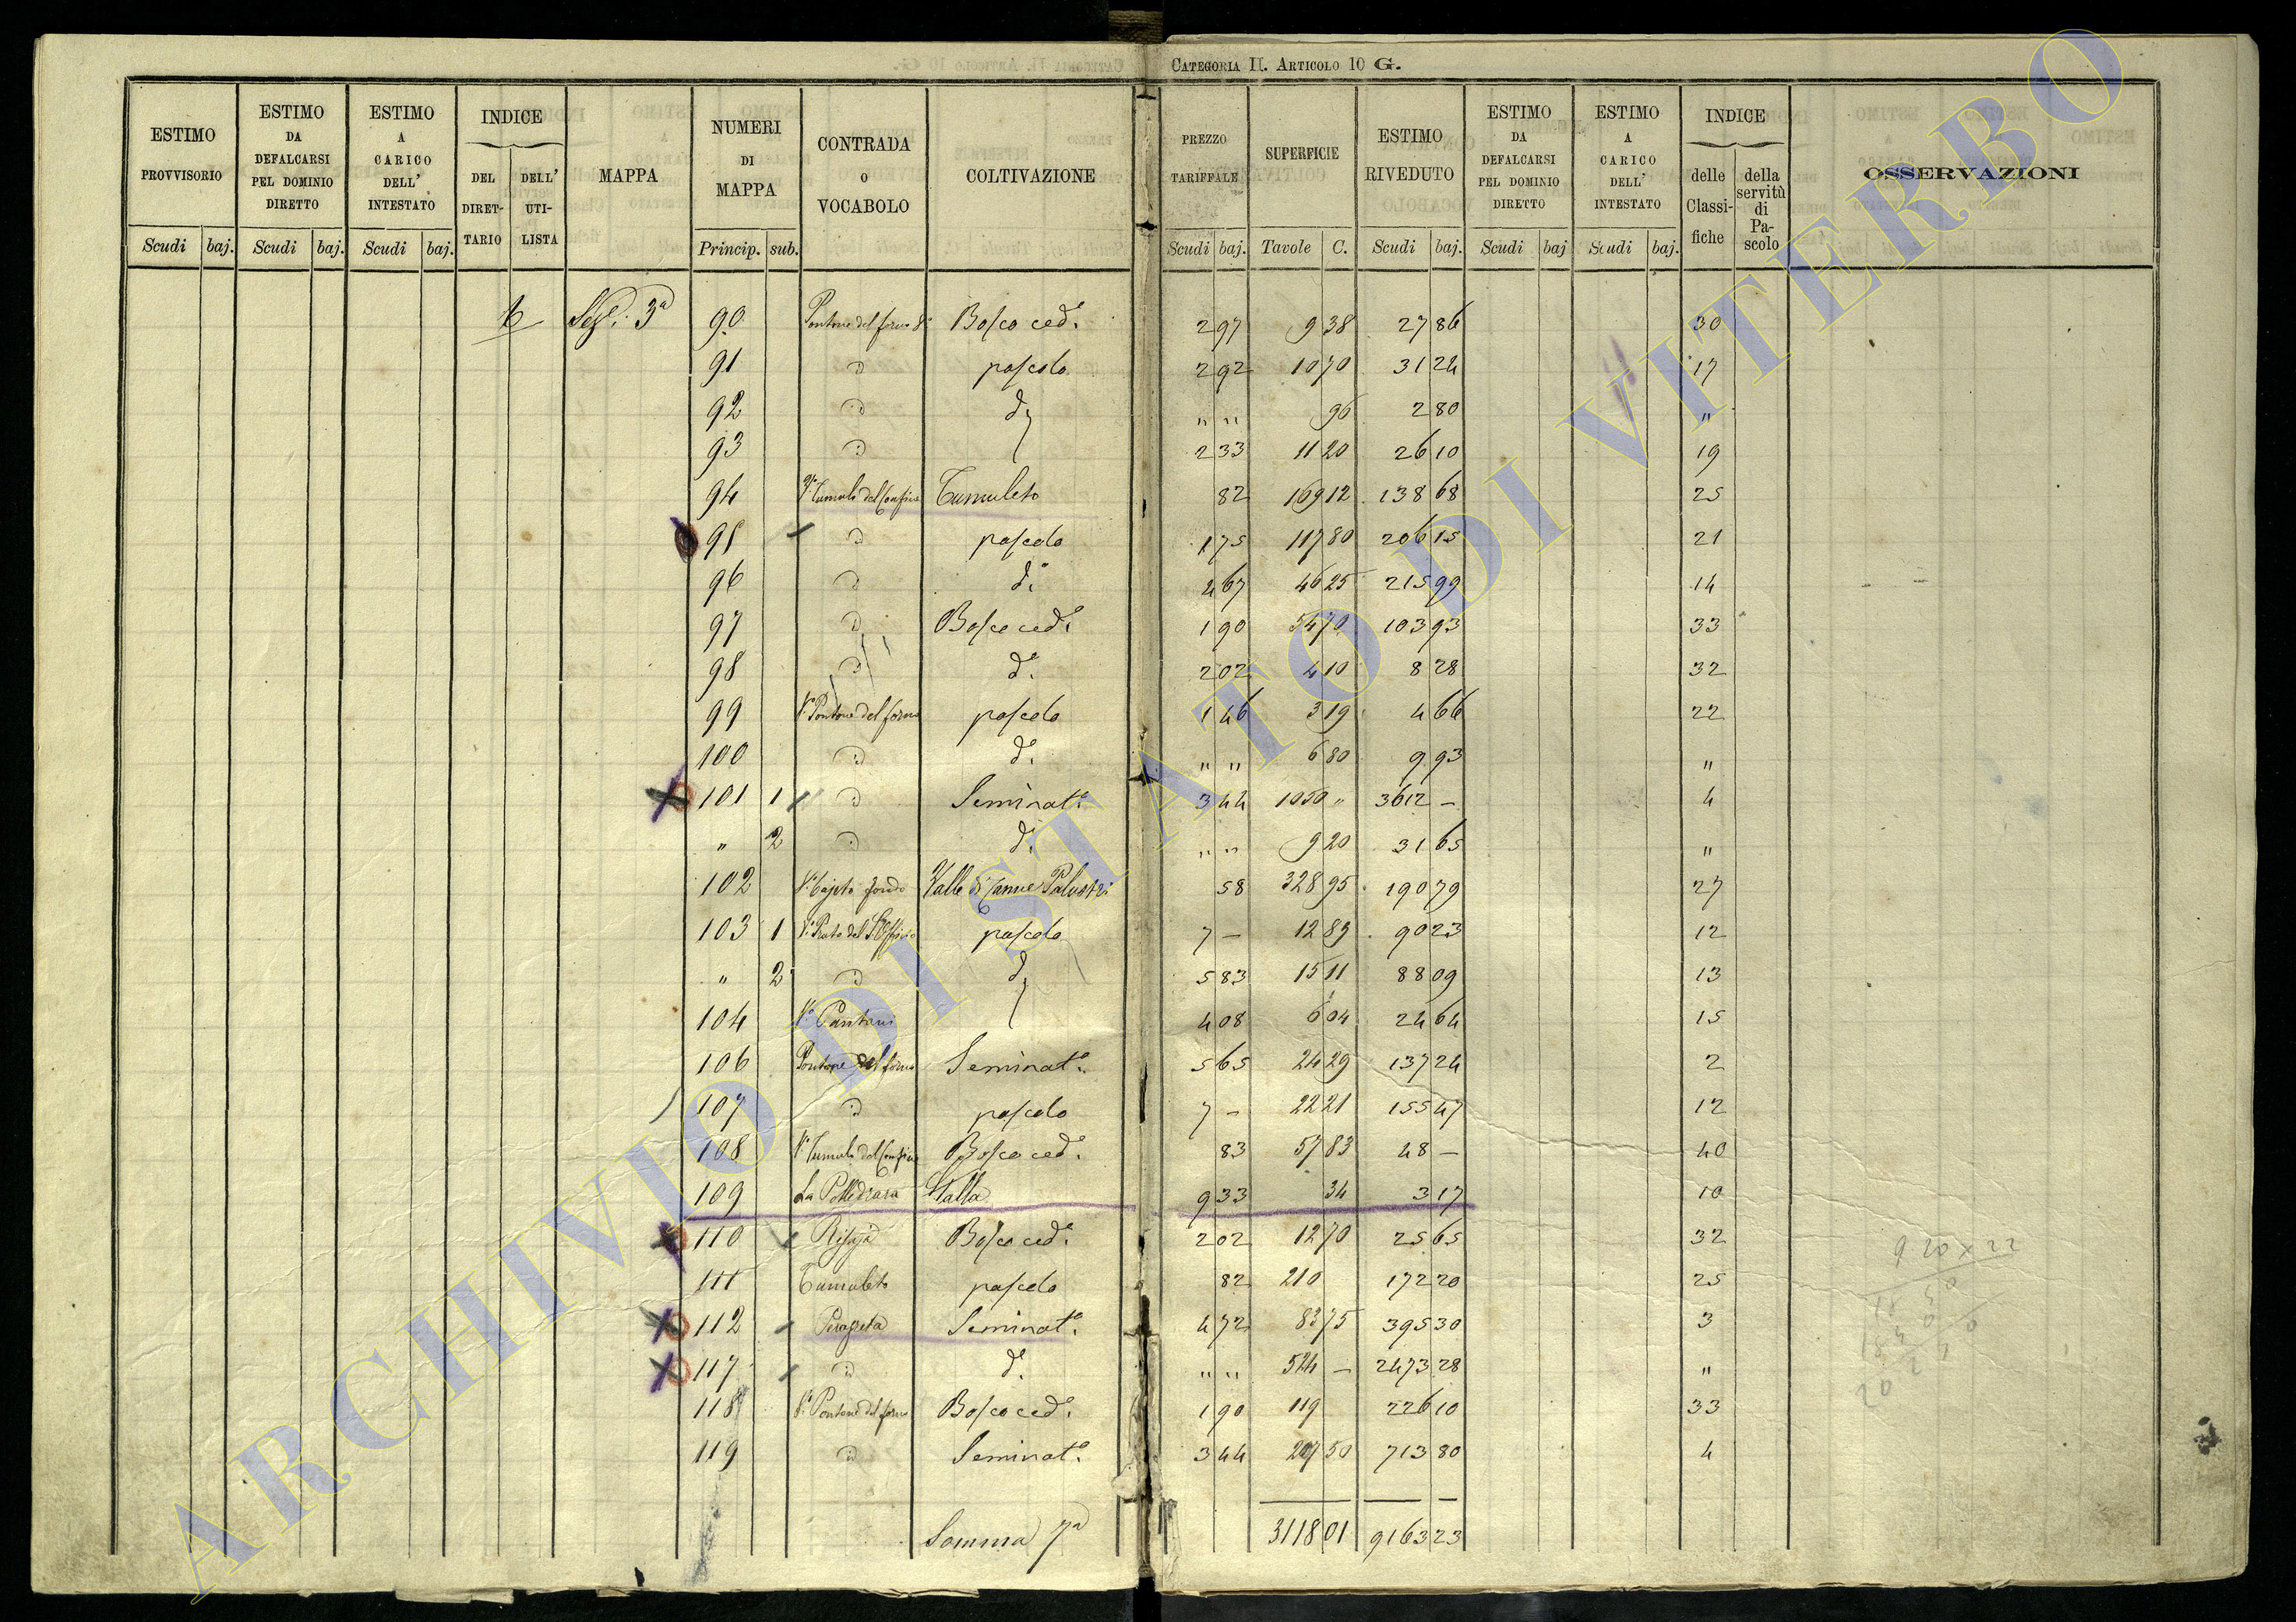 CATEGORIA II. ARTICOLO 10 G.
ESTIMO PROVVISORIO Scudi baj.
ESTIMO DA DEFALCARSI PEL DOMINIO DIRETTO Scudi baj.
ESTIMO A CARICO DELL' INTESTATO Scudi baj.
INDICE DEL DIRET-TARIO DELL' UTI-LISTA
MAPPA
NUMERI DI MAPPA Princip. sub.
CONTRADA O VOCABOLO
COLTIVAZIONE
PREZZO TARIFFALE Scudi baj.
SUPERFICIE Tavole C.
ESTIMO RIVEDUTO Scudi baj.
ESTIMO DA DEFALCARSI PEL DOMINIO DIRETTO Scudi baj
ESTIMO A CARICO DELL' INTESTATO Scudi baj.
INDICE delle Classi-fiche della servitù di Pa-scolo
OSSERVAZIONI
3ª 90 Pontone del forno Bosco ced.º 2 97 9 38 27 86 30
91 " pascolo 2 92 10 70 31 24 17
92 " dº " " 96 2 80 "
93 " 2 33 11 20 26 10 19
94 Vº Tumulo del Confine Tumuleto 82 169 12 138 68 25
95 " pascolo 1 75 117 80 206 15 21
96 " dº 4 67 46 25 215 99 14
97 " Bosco ced.º 1 90 54 70 103 93 33
98 " dº 2 02 4 10 8 28 32
99 Vº Pontone del forno pascolo 1 46 3 19 4 66 22
100 " dº " " 6 80 9 93 "
101 1 " Seminatº 3 44 1050 " 3612 — 4
" 2 " dº " " 9 20 31 65 "
102 fondo Valle di Canne Palustri 58 328 95 190 79 27
103 1 Vº Prato del pascolo 7 — 12 89 90 23 12
" 2 " dº 5 83 15 11 88 09 13
104 Vº Pantani 4 08 6 04 24 64 15
106 Pontone del forno Seminatº 5 65 24 29 137 24 2
107 " pascolo 7 — 22 21 155 47 12
108 Vº Tumulo del Confine Bosco ced.º 83 57 83 48 — 40
109 La Polledrara Stalla 9 33 34 3 17 10
110 Bosco ced.º 2 02 12 70 25 65 32
111 Tumuleto pascolo 82 210 172 20 25
112 Seminatº 4 72 83 75 395 30 3
117 " dº " " 524 — 2473 28 "
118 Vº Pontone del forno Bosco ced.º 1 90 119 226 10 33
119 " Seminatº 3 44 207 50 713 80 4
Somma 7ª 3118 01 9163 23
ARCHIVIO DI STATO DI VITERBO